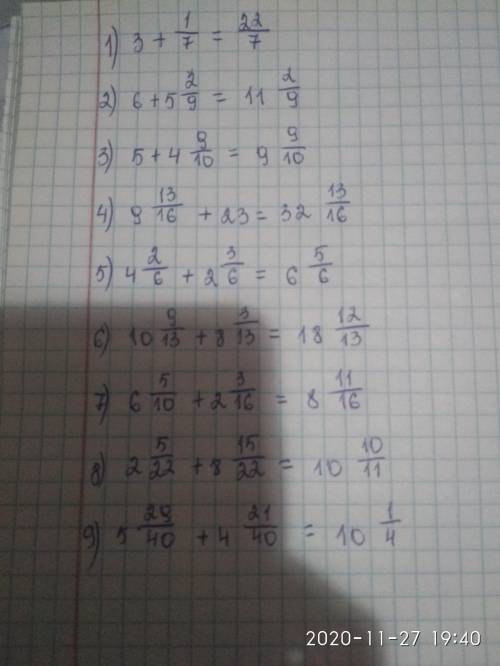 1) 3 + 1/7 = 22/7
2) 6 + 5 2/9 = 11 2/9
3) 5 + 4 9/10 = 9 9/10
4) 9 13/16 + 23 = 32 13/16
5) 4 2/6 + 2 3/6 = 6 5/6
6) 10 9/13 + 8 3/13 = 18 12/13
7) 6 5/10 + 2 3/16 = 8 11/16
8) 2 5/22 + 8 15/22 = 10 10/11
9) 5 29/40 + 4 21/40 = 10 1/4
2020-11-27 19:40